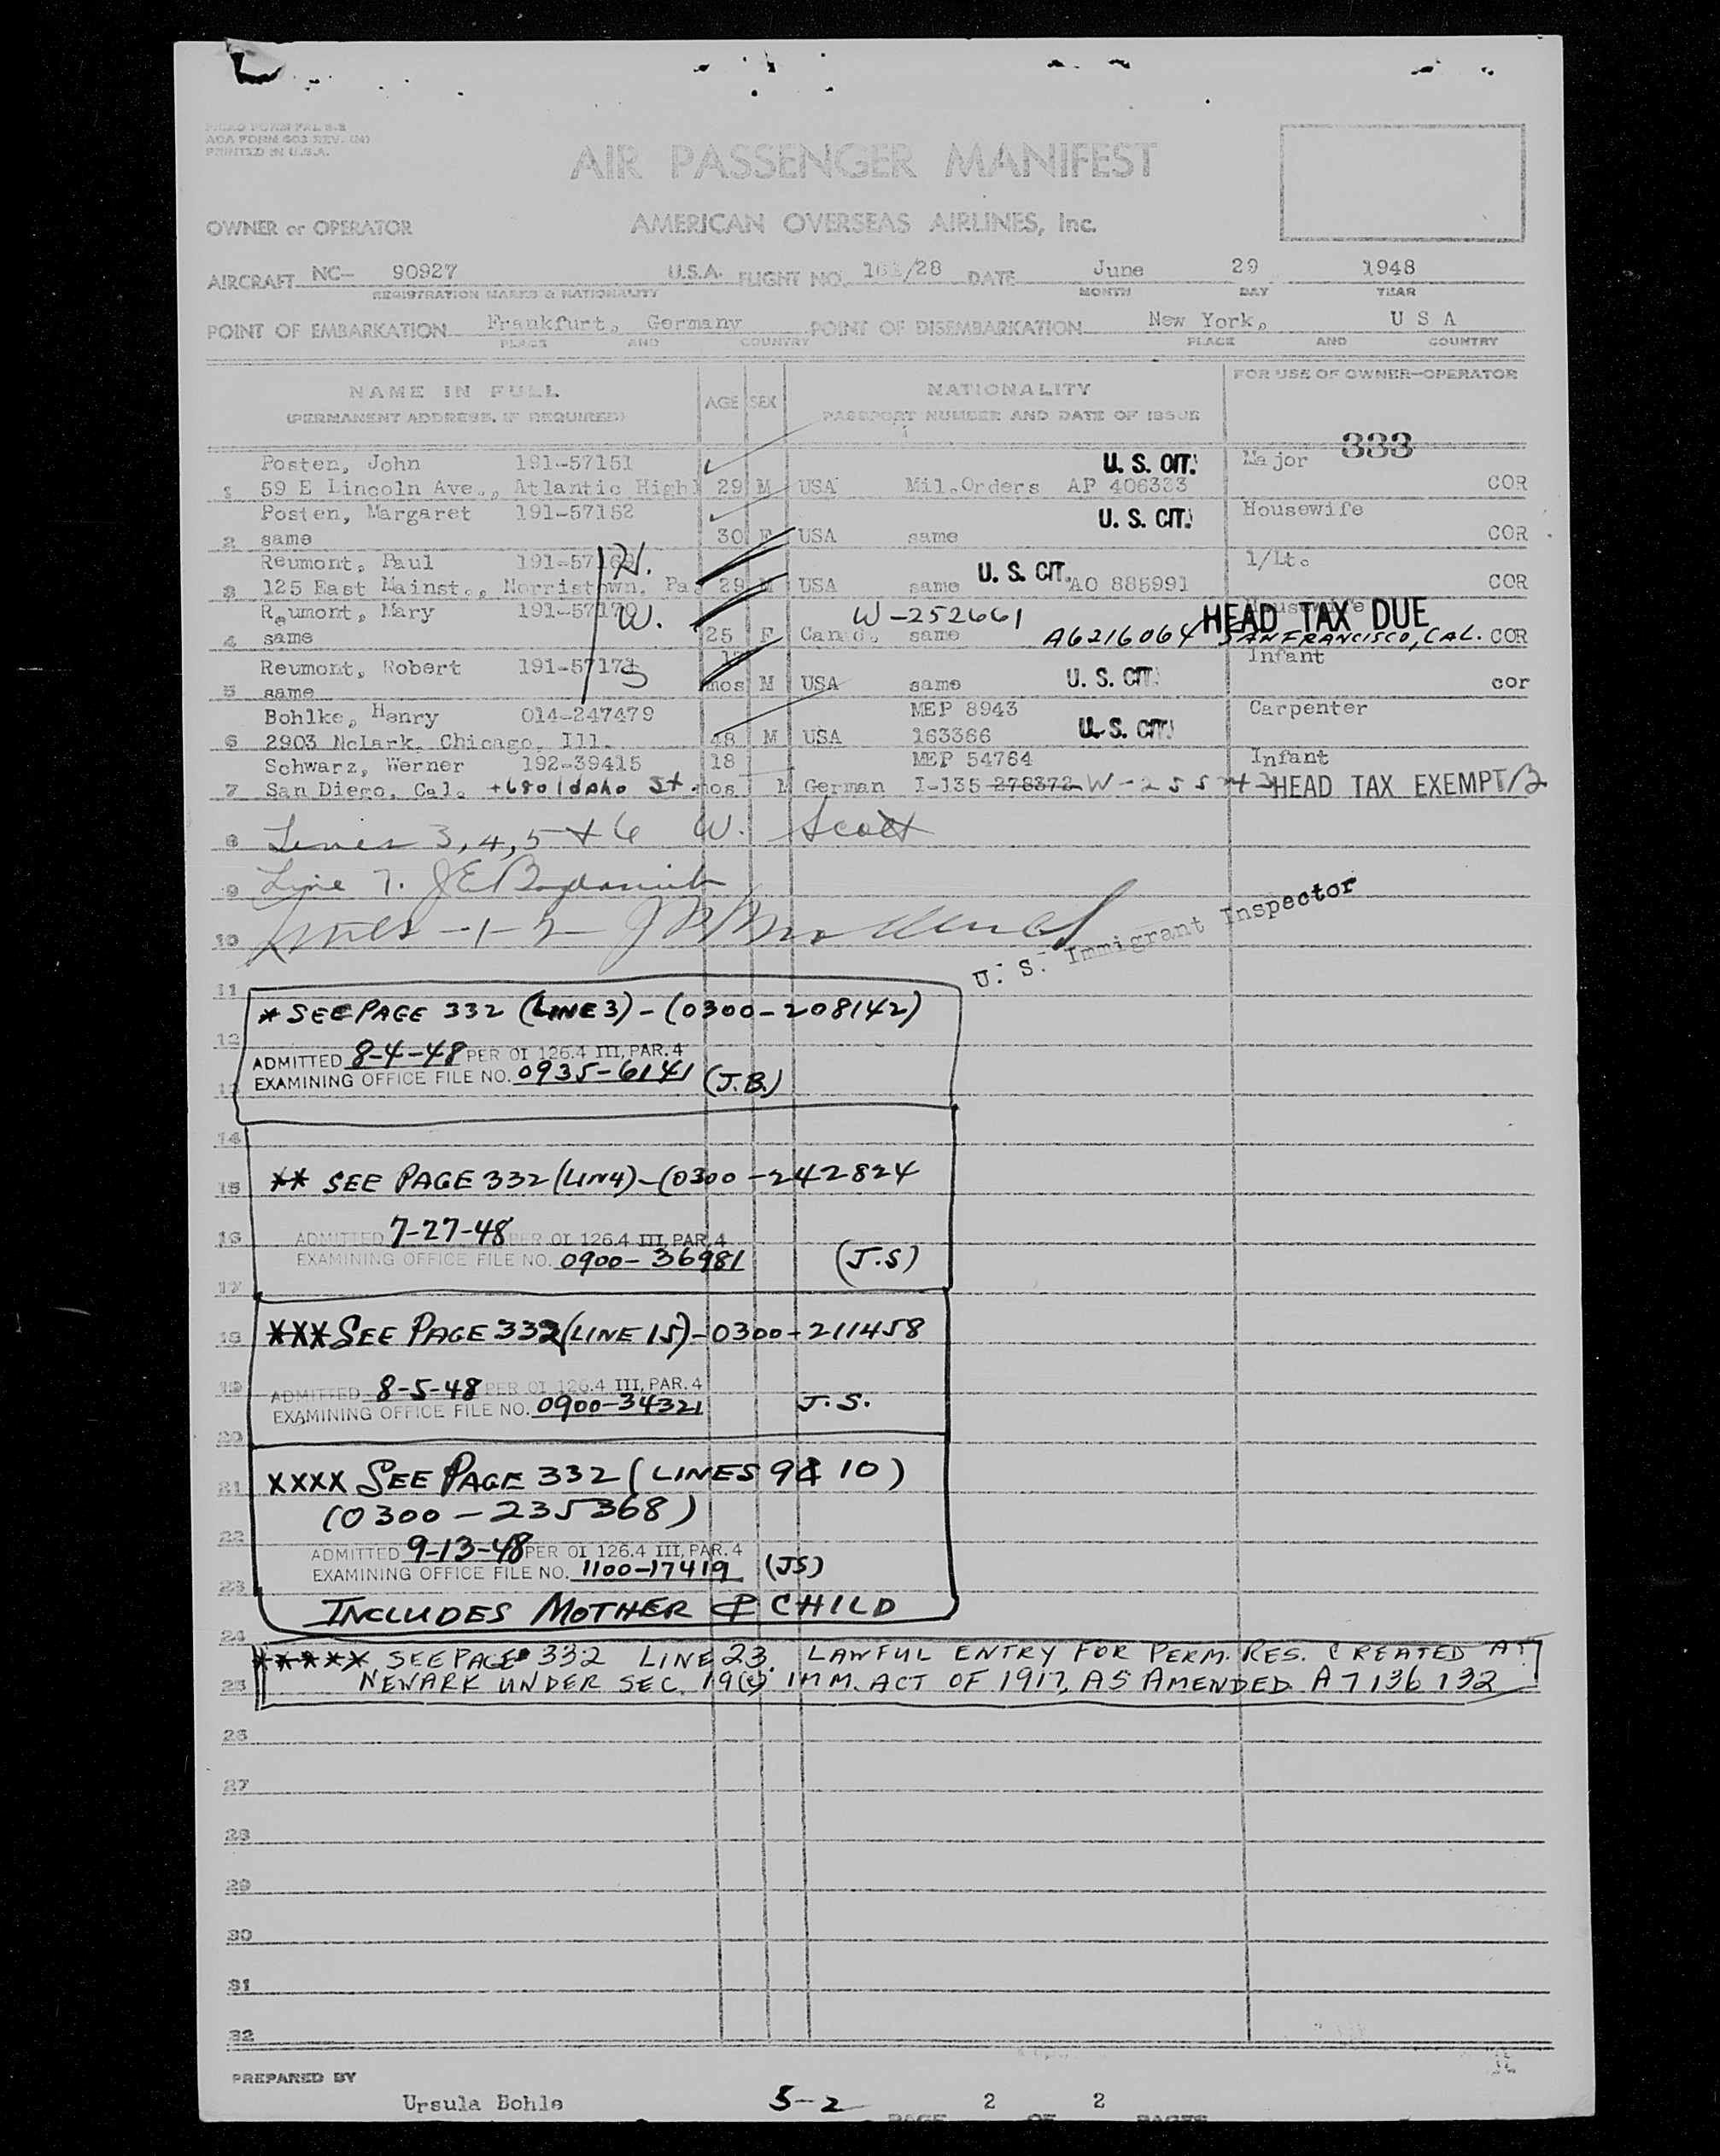 ACA FORM 603 REV. (N)
PRINTED IN U.S.A.
AIR PASSENGER MANIFEST
OWNER or OPERATOR AMERICAN OVERSEAS AIRLINES, Inc.
AIRCRAFT NC- 90927 U.S.A. FLIGHT NO. /28 DATE June 29 1948
REGISTRATION MARKS & NATIONALITY MONTH DAY YEAR
POINT OF EMBARKATION Frankfurt, Germany POINT OF DISEMBARKATION New York, U S A
PLACE AND COUNTRY PLACE AND COUNTRY
NAME IN FULL AGE SEX NATIONALITY FOR USE OF OWNER-OPERATOR
(PERMANENT ADDRESS, IF REQUIRED) PASSPORT NUMBER AND DATE OF ISSUE
333
Posten, John 191-57151 U. S. CIT. Major
1 59 E Lincoln Ave., Atlantic Highl 29 M USA Mil.Orders AF 406333 COR
Posten, Margaret 191-57152 U. S. CIT. Housewife
2 same 30 F USA same COR
Reumont, Paul 191-57169 H. U. S. CIT. 1/Lt.
3 125 East Mainst., Norristown, Pa. 29 M USA same AO 885991 COR
Reumont, Mary 191-57170 W. W-252661 Housewife HEAD TAX DUE
4 same 25 F Canad. same A6216064 SAN FRANCISCO, CAL. COR
Reumont, Robert 191-5717 S 17 Infant
5 same mos M USA same U. S. CIT. cor
Bohlke, Henry 014-247479 MEP 8943 Carpenter
6 2903 NcLark, Chicago, Ill. 48 M USA 163366 U. S. CIT.
Schwarz, Werner 192-39415 18 MEP 54764 Infant
7 San Diego, Cal. +680 Idaho St. mos M German I-135 278372 W-255 HEAD TAX EXEMPT
8 Lines 3, 4, 5 + 6 W. Scott
9 Line 7. J E
10 Lines -1-2-
U. S. Immigrant Inspector
11
* SEE PAGE 332 (LINE 3) - (0300-208142)
12
ADMITTED 8-4-48 PER OI 126.4 III, PAR. 4
13 EXAMINING OFFICE FILE NO. 0935-6141 (J.B.)
14
15 ** SEE PAGE 332 (LIN4) - (0300-242824
16 ADMITTED 7-27-48 PER OI 126.4 III, PAR. 4
EXAMINING OFFICE FILE NO. 0900-36981 (J.S)
17
18 *** SEE PAGE 332 (LINE 15) - 0300-211458
19 ADMITTED 8-5-48 PER OI 126.4 III, PAR. 4
EXAMINING OFFICE FILE NO. 0900-34321 J.S.
20
21 XXXX SEE PAGE 332 (LINES 9 & 10)
(0300-235368)
22 ADMITTED 9-13-48 PER OI 126.4 III, PAR. 4
23 EXAMINING OFFICE FILE NO. 1100-17419 (JS)
INCLUDES MOTHER & CHILD
24
***** SEE PAGE 332 LINE 23. LAWFUL ENTRY FOR PERM. RES. CREATED AT
25 NEWARK UNDER SEC. 19(c) IMM. ACT OF 1917, AS AMENDED. A7136132
26
27
28
29
30
31
32
PREPARED BY
Ursula Bohle 5-2 2 2
PAGE OF PAGES